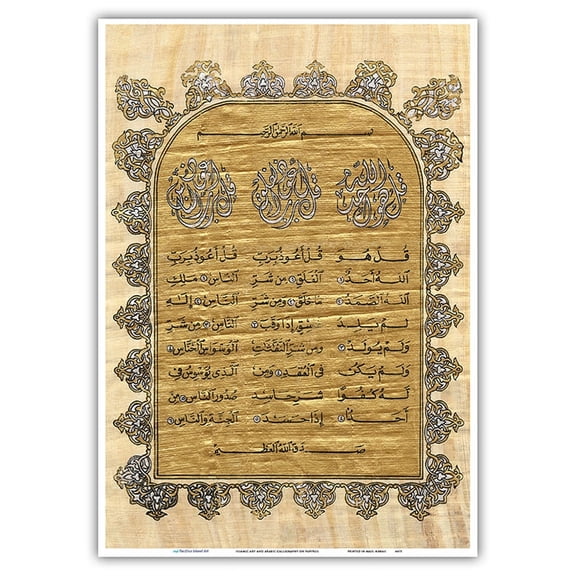 بسم الله الرحمن الرحيم
قل هو الله أحد
قل أعوذ برب الفلق
قل أعوذ برب الناس
قُلْ هُوَ
اللهُ أَحَدٌ ①
اللهُ الصَّمَدُ ②
لَمْ يَلِدْ
وَلَمْ يُولَدْ ③
وَلَمْ يَكُنْ
لَهُ كُفُوًا
أَحَدٌ ④
قُلْ أَعُوذُ بِرَبِّ
الْفَلَقِ ① مِنْ شَرِّ
مَا خَلَقَ ② وَمِنْ شَرِّ
إِذَا وَقَبَ ③
وَمِنْ شَرِّ النَّفَّاثَاتِ
فِي الْعُقَدِ ④ وَمِنْ
شَرِّ حَاسِدٍ
إِذَا حَسَدَ ⑤
قُلْ أَعُوذُ بِرَبِّ
النَّاسِ ① مَلِكِ
النَّاسِ ② إِلَهِ
النَّاسِ ③ مِنْ شَرِّ
الْوَسْوَاسِ الْخَنَّاسِ ④
الَّذِي يُوَسْوِسُ فِي
صُدُورِ النَّاسِ ⑤ مِنَ
الْجِنَّةِ وَالنَّاسِ ⑥
صدق الله العظيم
Pacifica Island Art
ISLAMIC ART AND ARABIC CALLIGRAPHY ON PAPYRUS
PRINTED IN MAUI, HAWAII